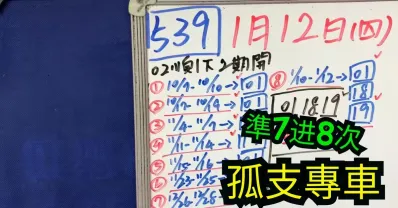 539 1月12日(四)
02順下2期開
① 10/7-10/10→01
② 10/2-10/4→01
③ 11/4-11/7→
④ 11/11-11/14→
⑤ 11/15-11/18
⑥ 11/23-11/25
⑦ 12/26-12/28
⑧ 1/10-1/12→01
18
19
01 18 19
準7进8次
孤支專車